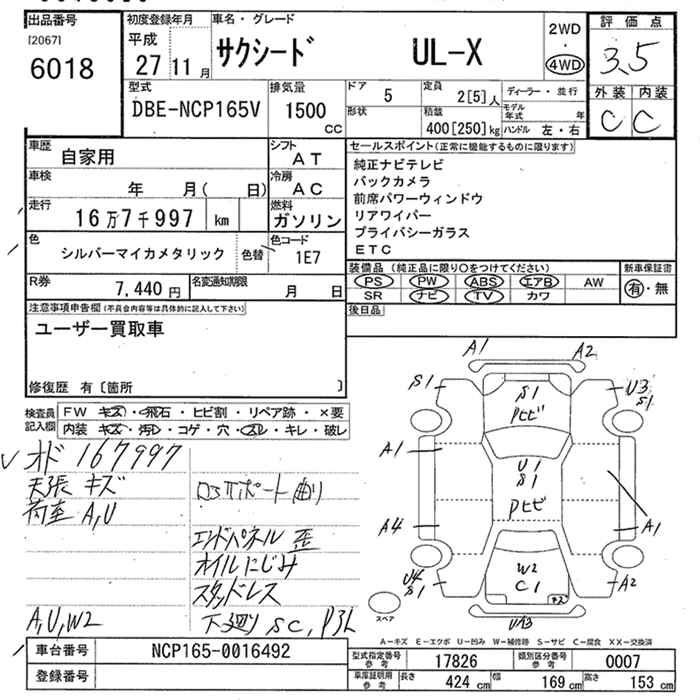 出品番号
[2067]
6018
初度登録年月
平成
27 11 月
車名・グレード
サクシード UL-X
2WD
・
4WD
評価点
3.5
外装 内装
C C
型式
DBE-NCP165V
排気量
1500
CC
ドア
5
定員
2[5] 人
ディーラー・並行
形状
積載
400[250] kg
モデル年式 年
ハンドル 左・右
車歴
自家用
シフト
AT
車検
年 月( 日)
冷房
AC
走行
16万7千997 km
燃料
ガソリン
色
シルバーマイカメタリック
色替
色コード
1E7
R券
7,440 円
名変通知期限
月 日
セールスポイント(正常に機能するものに限ります)
純正ナビテレビ
バックカメラ
前席パワーウィンドウ
リアワイパー
プライバシーガラス
ETC
装備品 (純正品に限り○をつけてください)
新車保証書
PS PW ABS エアB AW
SR ナビ TV カワ
有・無
後日品
注意事項申告欄(不具合内容等は具体的に記入して下さい)
ユーザー買取車
修復歴 有 [箇所 ]
検査員記入欄
FW キズ・飛石・ヒビ割・リペア跡・×要
内装 キズ・汚れ・コゲ・穴・スレ・キレ・破レ
オド 167997
天張 キズ
荷室 A,U
ロアサポート曲り
エンドパネル 歪
オイルにじみ
スタッドレス
A,U,W2
下廻り SC, P3L
A1 A2
S1
S1
Pヒビ
U3
S1
A1
U1
S1
Pヒビ
A4
A1
W2
C1
U4
S1
A2
UA3
スペア
A−キズ E−エクボ U−凹み W−補修跡 S−サビ C−腐食 XX−交換済
車台番号
NCP165-0016492
登録番号
型式指定番号 参考
17826
類別区分番号 参考
0007
車庫証明用 参考
長さ 424 cm
幅 169 cm
高さ 153 cm